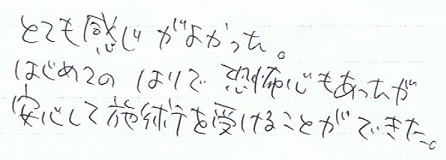 とても感じがよかった。
はじめての はりで 恐怖心もあったが
安心して施術を受けることができた。